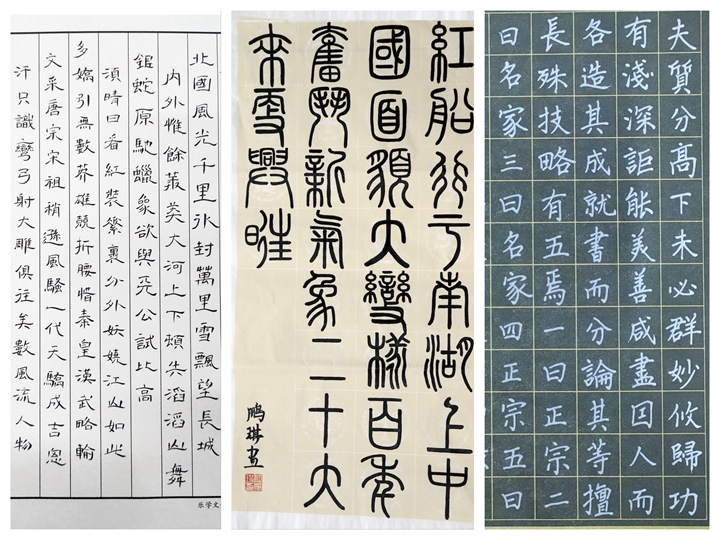 北國風光千里冰封萬里雪飄望長城
内外惟餘莽莽大河上下頓失滔滔山舞
銀蛇原馳蠟象欲與天公試比高
須晴日看紅裝素裹分外妖嬈江山如此
多嬌引無數英雄競折腰惜秦皇漢武略輸
文采唐宗宋祖稍遜風騷一代天驕成吉思
汗只識彎弓射大雕俱往矣數風流人物
乐学文
紅船行于南湖上中
國面貌大變樣百年
奮鬥新氣象二十大
來更興旺
鹏琪書
夫質分高下未必群妙攸歸功
有淺深詎能美善咸盡因人而
各造其成就書而分論其等擅
長殊技略有五焉一曰正宗二
曰名家三曰名家四正宗五曰